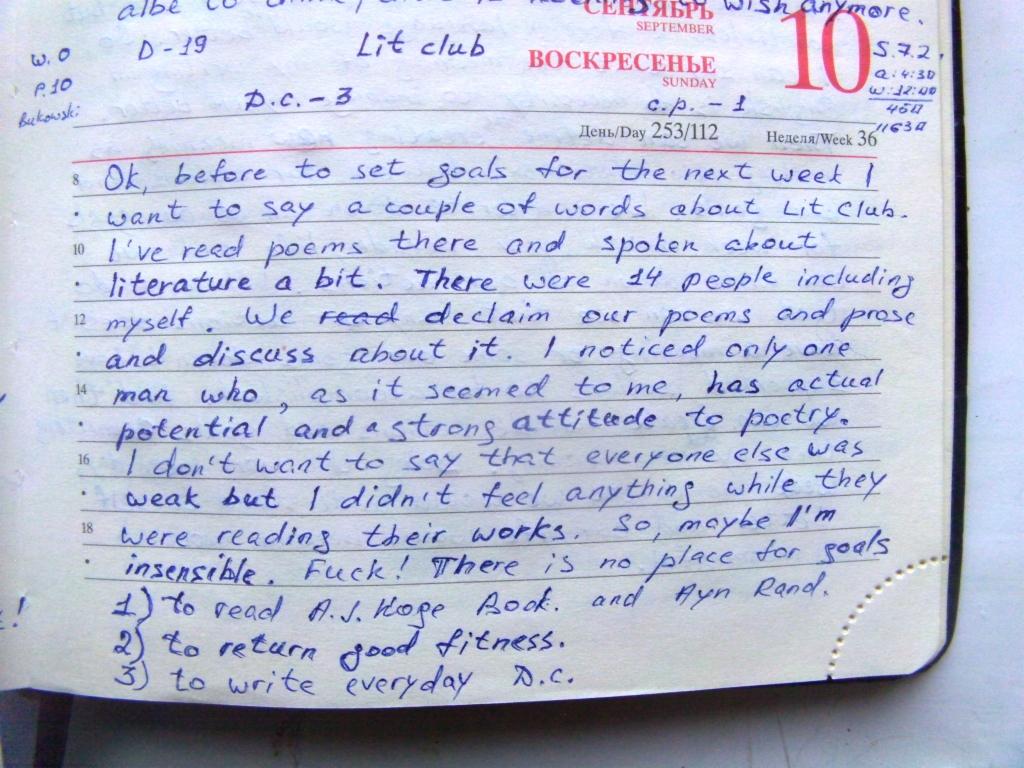 wish anymore.
СЕНТЯБРЬ
SEPTEMBER
10
W.O D-19 Lit club
ВОСКРЕСЕНЬЕ
SUNDAY
S.7.2.
P.10
a:4:30
Bukowski
w:12:00
D.C.-3 C.P. -1
450
11630
День/Day 253/112 Неделя/Week 36
8 Ok, before to set goals for the next week I
want to say a couple of words about Lit Club.
10 I've read poems there and spoken about
literature a bit. There were 14 people including
12 myself. We read declaim our poems and prose
and discuss about it. I noticed only one
14 man who, as it seemed to me, has actual
potential and a strong attitude to poetry.
16 I don't want to say that everyone else was
weak but I didn't feel anything while they
18 were reading their works. So, maybe I'm
insensible. Fuck! There is no place for goals
1) to read A.J. Hoge Book. and Ayn Rand.
2) to return good fitness.
3) to write everyday D.C.